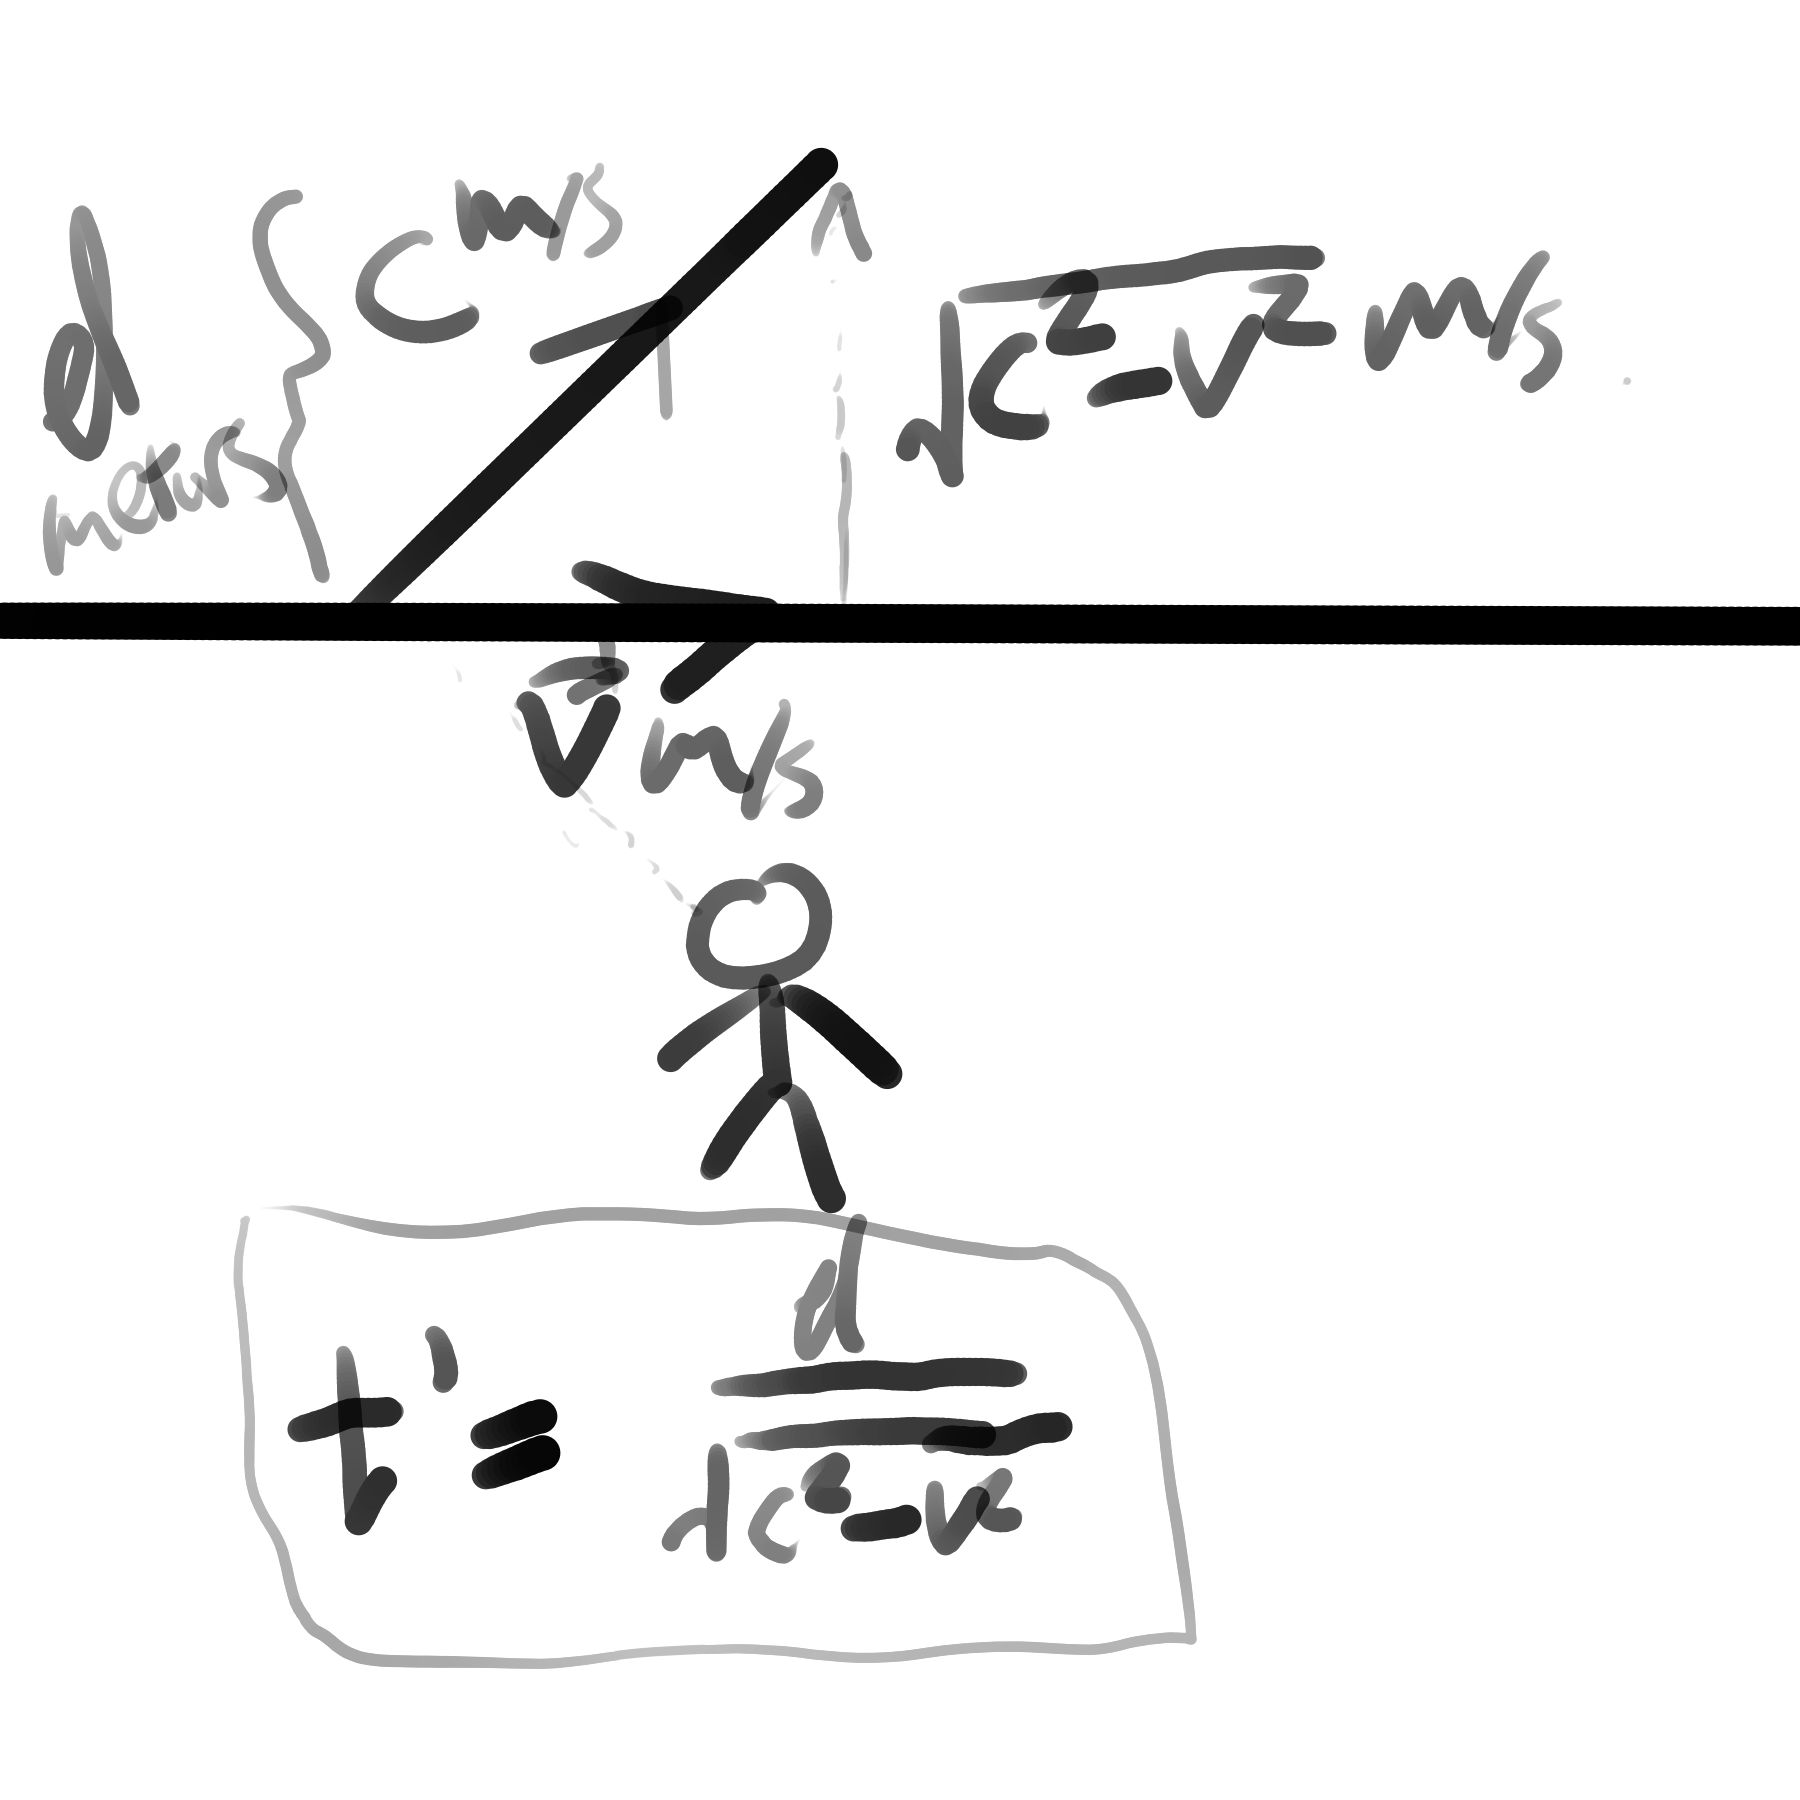 d meters
c m/s
√c²-v² m/s
v⃗ m/s
t' = d / √c²-v²